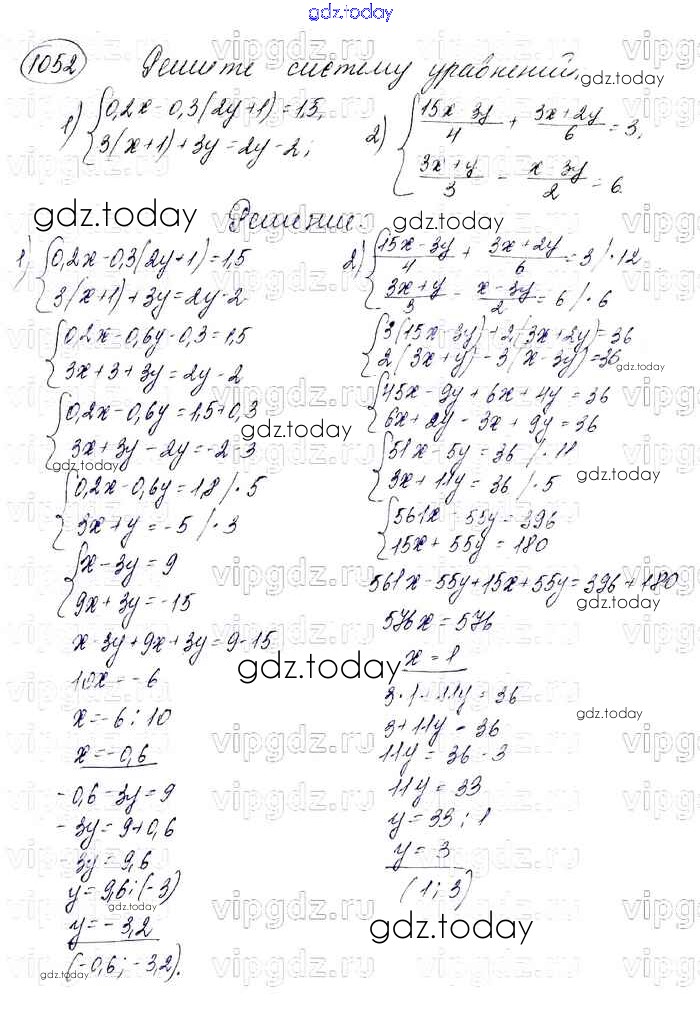 gdz.today
1052 Решите систему уравнений.
gdz.today
1) {0,2x - 0,3(2y+1) = 1,5,
3(x+1) + 3y = 2y - 2;
2) {(15x 3y)/4 + (3x+2y)/6 = 3,
(3x+y)/3 - (x-3y)/2 = 6.
gdz.today
Решение:
gdz.today
1) {0,2x - 0,3(2y+1) = 1,5
3(x+1) + 3y = 2y - 2
{0,2x - 0,6y - 0,3 = 1,5
3x + 3 + 3y = 2y - 2
{0,2x - 0,6y = 1,5 + 0,3
3x + 3y - 2y = -2 - 3
gdz.today
gdz.today
{0,2x - 0,6y = 1,8 /·5
3x + y = -5 /·3
{x - 3y = 9
9x + 3y = -15
x - 3y + 9x + 3y = 9 - 15
10x = -6
x = -6 : 10
x = -0,6
-0,6 - 3y = 9
-3y = 9 + 0,6
-3y = 9,6
y = 9,6 : (-3)
gdz.today
y = -3,2
(-0,6; -3,2).
gdz.today
2) {(15x - 3y)/4 + (3x+2y)/6 = 3 /·12
(3x+y)/3 - (x-3y)/2 = 6 /·6
{3(15x - 3y) + 2(3x+2y) = 36
2(3x+y) - 3(x-3y) = 36
gdz.today
{45x - 9y + 6x + 4y = 36
6x + 2y - 3x + 9y = 36
{51x - 5y = 36 /·11
3x + 11y = 36 /·5
gdz.today
{561x - 55y = 396
15x + 55y = 180
561x - 55y + 15x + 55y = 396 + 180
gdz.today
576x = 576
x = 1
gdz.today
3·1 - 11y = 36
gdz.today
3 + 11y = 36
11y = 36 - 3
11y = 33
y = 33 : 1
y = 3
(1; 3)
gdz.today
vipgdz.ru